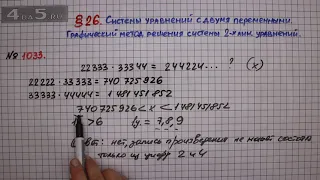 §26. Системы уравнений с двумя переменными.
Графический метод решения системы 2-х лин. уравнений.
№ 1033.
22333 · 33344 = 244224... ? (x)
22222 · 33333 = 740 725 926
33333 · 44444 = 1 481 451 852
740 725 926 < x < 1 481 451 852
>6 7,8,9
нет, запись произведения не может состоять
только из цифр 2 и 4